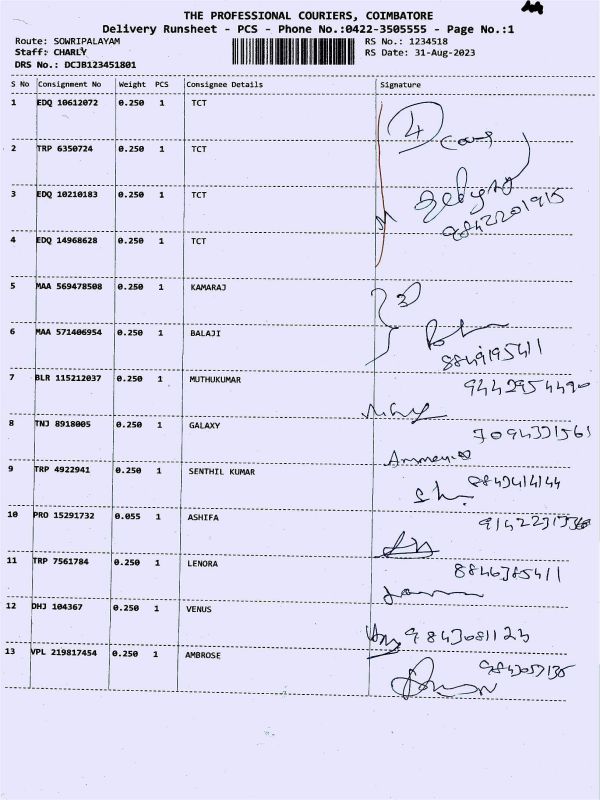 THE PROFESSIONAL COURIERS, COIMBATORE
Delivery Runsheet - PCS - Phone No.:0422-3505555 - Page No.:1
Route: SOWRIPALAYAM RS No.: 1234518
Staff: CHARLY RS Date: 31-Aug-2023
DRS No.: DCJB123451801
S No Consignment No Weight PCS Consignee Details Signature
1 EDQ 10612072 0.250 1 TCT
4
2 TRP 6350724 0.250 1 TCT
3 EDQ 10210183 0.250 1 TCT
9842201915
4 EDQ 14968628 0.250 1 TCT
5 MAA 569478508 0.250 1 KAMARAJ
2
6 MAA 571406954 0.250 1 BALAJI
8849195411
7 BLR 115212037 0.250 1 MUTHUKUMAR
9442954490
8 TNJ 8918005 0.250 1 GALAXY
7094331561
9 TRP 4922941 0.250 1 SENTHIL KUMAR
10 PRO 15291732 0.055 1 ASHIFA
11 TRP 7561784 0.250 1 LENORA
8846385411
12 DHJ 104367 0.250 1 VENUS
9843081123
13 VPL 219817454 0.250 1 AMBROSE